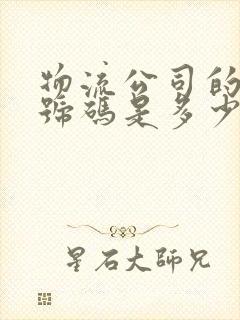 物流公司的
號碼是多少
星石大師兄